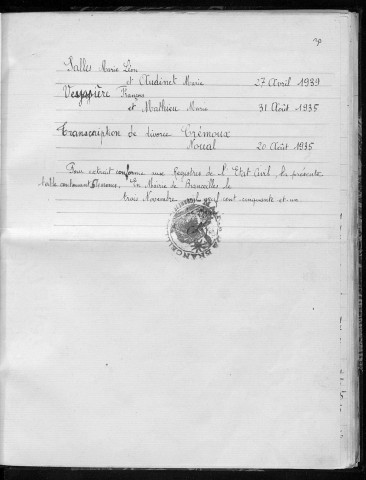 Salles Marie Léon
et Audinet Maria 27 Avril 1939
Veyssière François
et Mathieu Marie 31 Août 1935
Transcription de divorce Trémoux
Noual 20 Août 1935
Pour extrait conforme aux Registres de l'Etat Civil, la présente
table contenant
En Mairie de Branceilles le
trois Novembre neuf cent cinquante et un